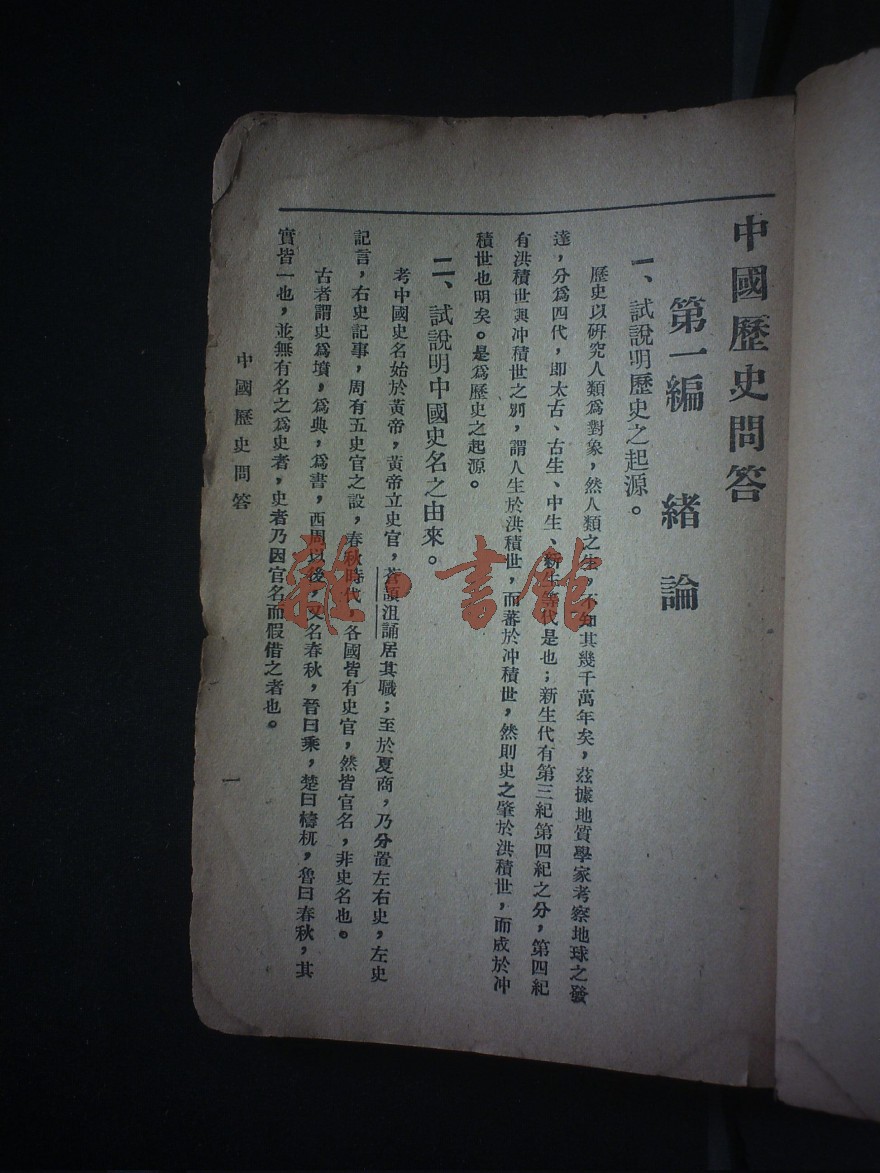 中國歷史問答
第一編 緒論
一、試說明歷史之起源。
歷史以研究人類爲對象，然人類之生，不知其幾千萬年矣，茲據地質學家考察地球之發
達，分爲四代，即太古、古生、中生、新生等代是也；新生代有第三紀第四紀之分，第四紀
有洪積世與冲積世之別，謂人生於洪積世，而蕃於冲積世，然則史之肇於洪積世，而成於冲
積世也明矣。是爲歷史之起源。
二、試說明中國史名之由來。
考中國史名始於黃帝，黃帝立史官，蒼頡沮誦居其職；至於夏商，乃分置左右史，左史
記言，右史記事，周有五史官之設，春秋時代，各國皆有史官，然皆官名，非史名也。
古者謂史爲墳，爲典，爲書，西周以後，又名春秋，晉曰乘，楚曰檮杌，魯曰春秋，其
實皆一也，並無有名之爲史者，史者乃因官名而假借之者也。
中國歷史問答
一
雜書館